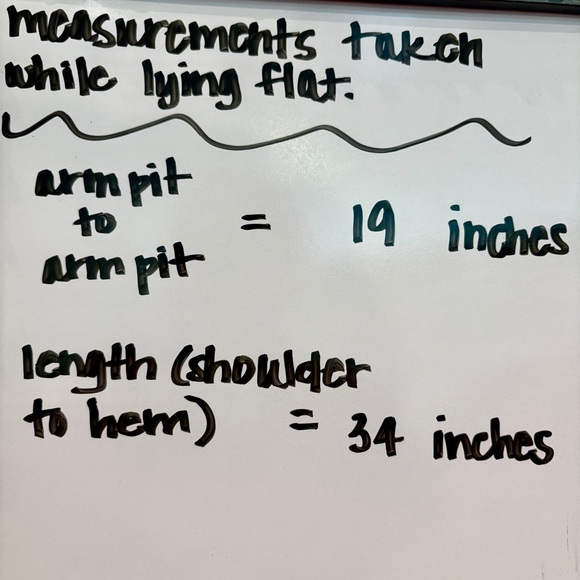 measurements taken
while lying flat.
arm pit
to
arm pit
= 19 inches
length (shoulder
to hem) = 34 inches